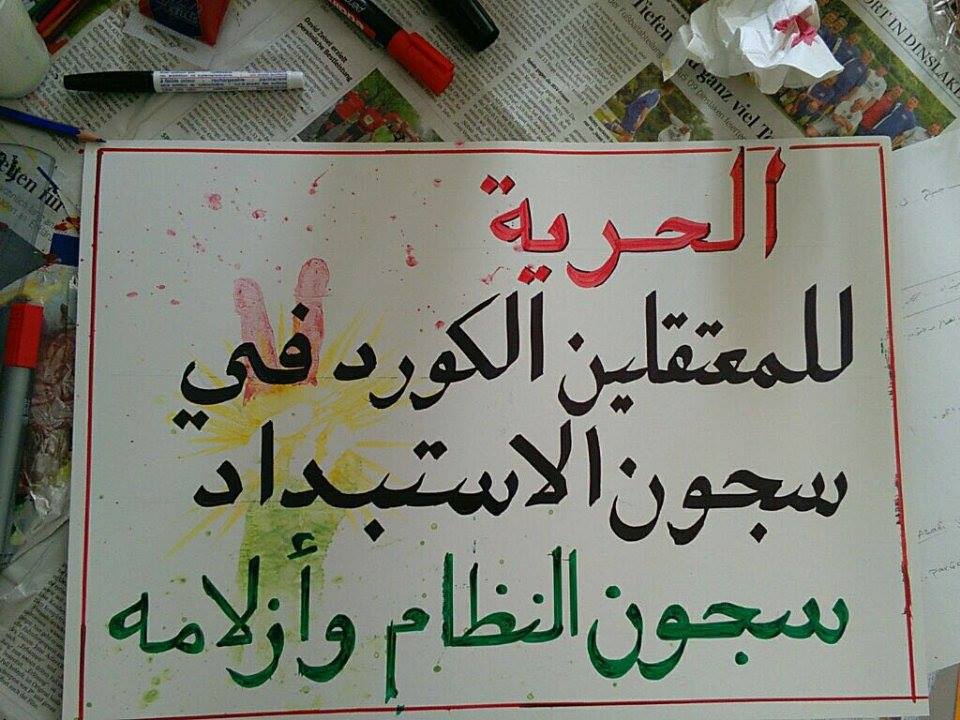 الحرية
للمعتقلين الكورد في
سجون الاستبداد
سجون النظام وأزلامه
Tiefen
d ganz viel T
ORT IN DINSLAKE